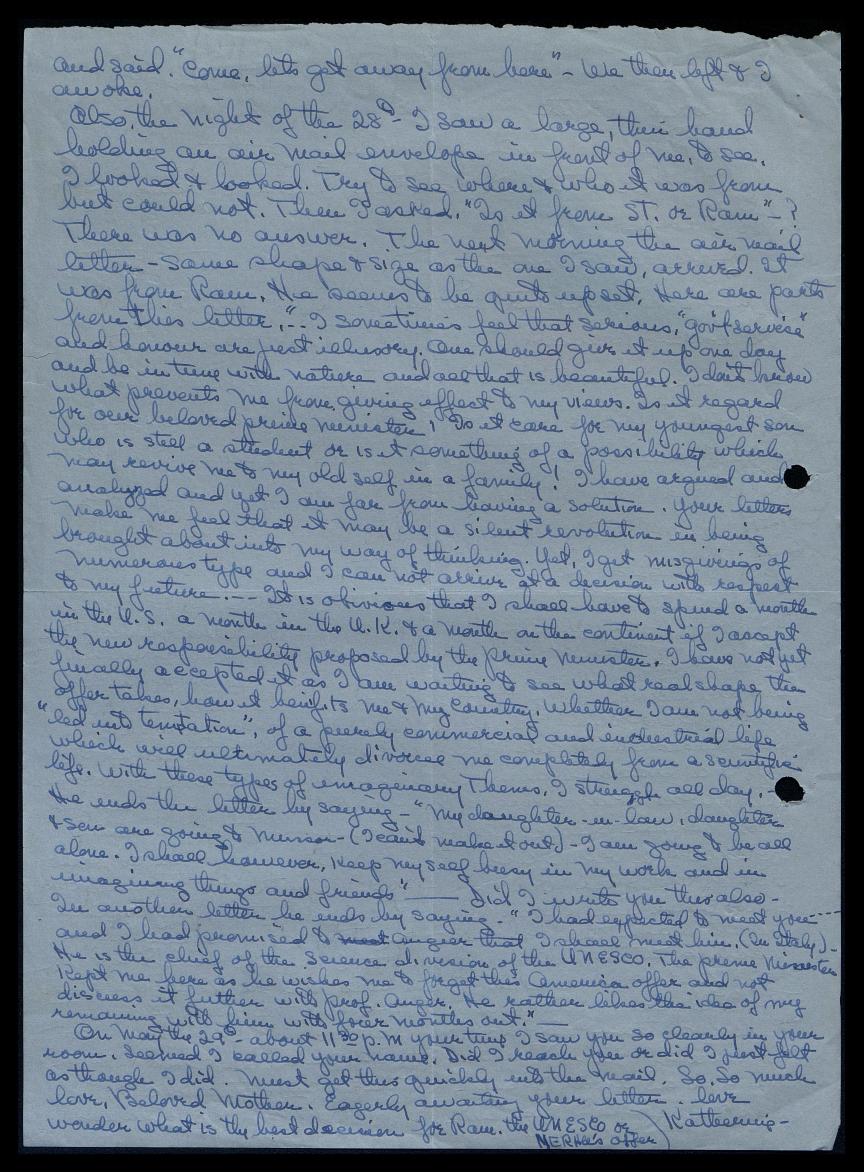 and said. "Come, lets get away from here" - We then left & I
awoke.
Also, the night of the 28th - I saw a large, thin hand
holding an air mail envelope in front of me, to see.
I looked & looked. Try to see where & who it was from
but could not. Then I asked, "Is it from ST. or Ram" - ?
There was no answer. The next morning the air mail
letter - same shape & size as the one I saw, arrived. It
was from Ram. He seems to be quite upset. Here are parts
from this letter, "-- I sometimes feel that serious, "gov't service"
and honour are just illusory. One should give it up one day
and be in tune with nature and all that is beautiful. I don't know
what prevents me from giving effect to my views. Is it regard
for our beloved prime minister! Is it care for my youngest son
who is still a student or is it something of a possibility which
may revive me to my old self in a family! I have argued and
analyzed and yet I am far from having a solution. Your letters
make me feel that it may be a silent revolution in being
brought about into my way of thinking. Yet, I get misgivings of
numerous type and I can not arrive at a decision with respect
to my future. --- It is obvious that I shall have to spend a month
in the U.S. a month in the U.K. & a month on the continent if I accept
the new responsibility proposed by the prime minister. I have not yet
finally accepted it as I am waiting to see what real shape the
offer takes, how it benifits me & my country, whether I am not being
"led into temtation", of a purely commercial and industrial life
which will ultimately divorce me completely from a scientific
life. With these types of imaginary Themes, I struggle all day. -
He ends the letter by saying - "My daughter-in-law, daughter
& son are going to - (I can't make it out) - I am going to be all
alone. I shall however, keep my self busy in my work and in
imagining things and friends" —— Did I write you this also -
In another letter he ends by saying. "I had expected to meet you ---
and I had promised to meet Auger that I shall meet him. (In Italy) -
He is the chief of the science division of the UNESCO. The prime minister
kept me here as he wishes me to forget this America offer and not
discuss it futher with prof. Auger. He rather likes the idea of my
remaining with him with four months out." —
On May the 29th - about 11 30 p.m your time I saw you so clearly in your
room. Seemed I called your name. Did I reach you or did I just felt
as though I did. Must get this quickly into the mail. So, So much
love, Beloved Mother. Eagerly awaiting your letter. love
wonder what is the best decision for Ram. the UNESCO or
NERHU's offer) Katherine -